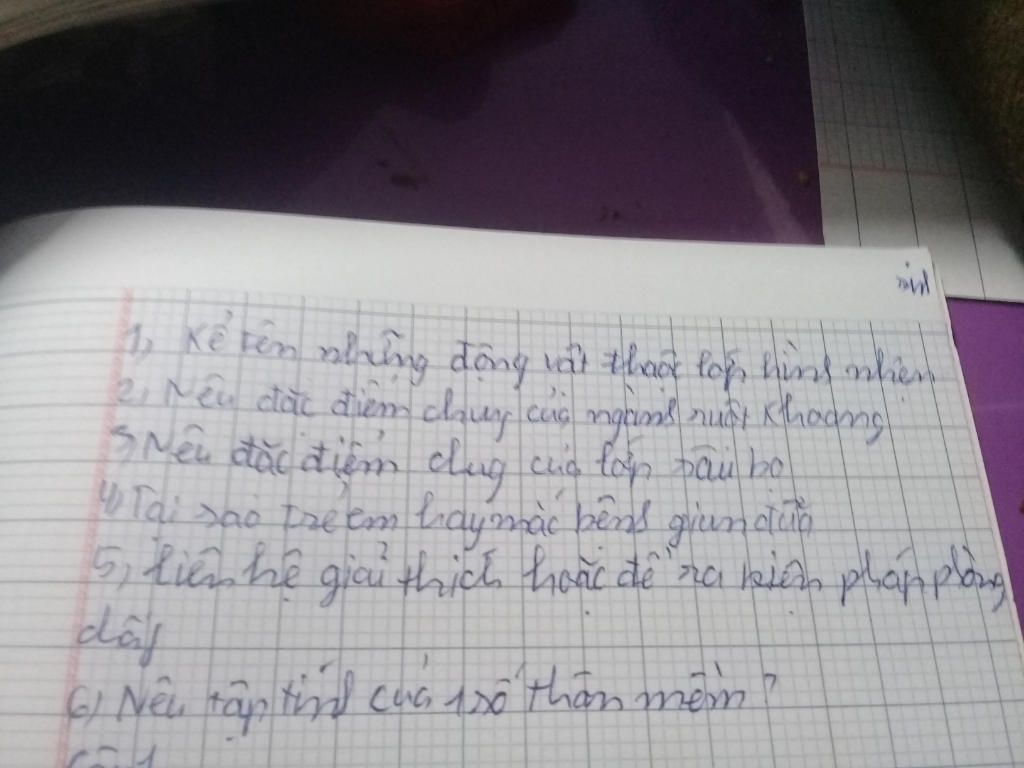 1, Kể tên những động vật thuộc lớp hình nhện
2, Nêu đặc điểm chung của ngành ruột khoang
3 Nêu đặc điểm chug của lớp sâu bọ
4) Tại sao trẻ em hay mắc bệnh giun đũa
5, Liên hệ giải thích hoặc đề ra biện pháp phòng
6) Nêu tập tính của 1 số thân mềm?